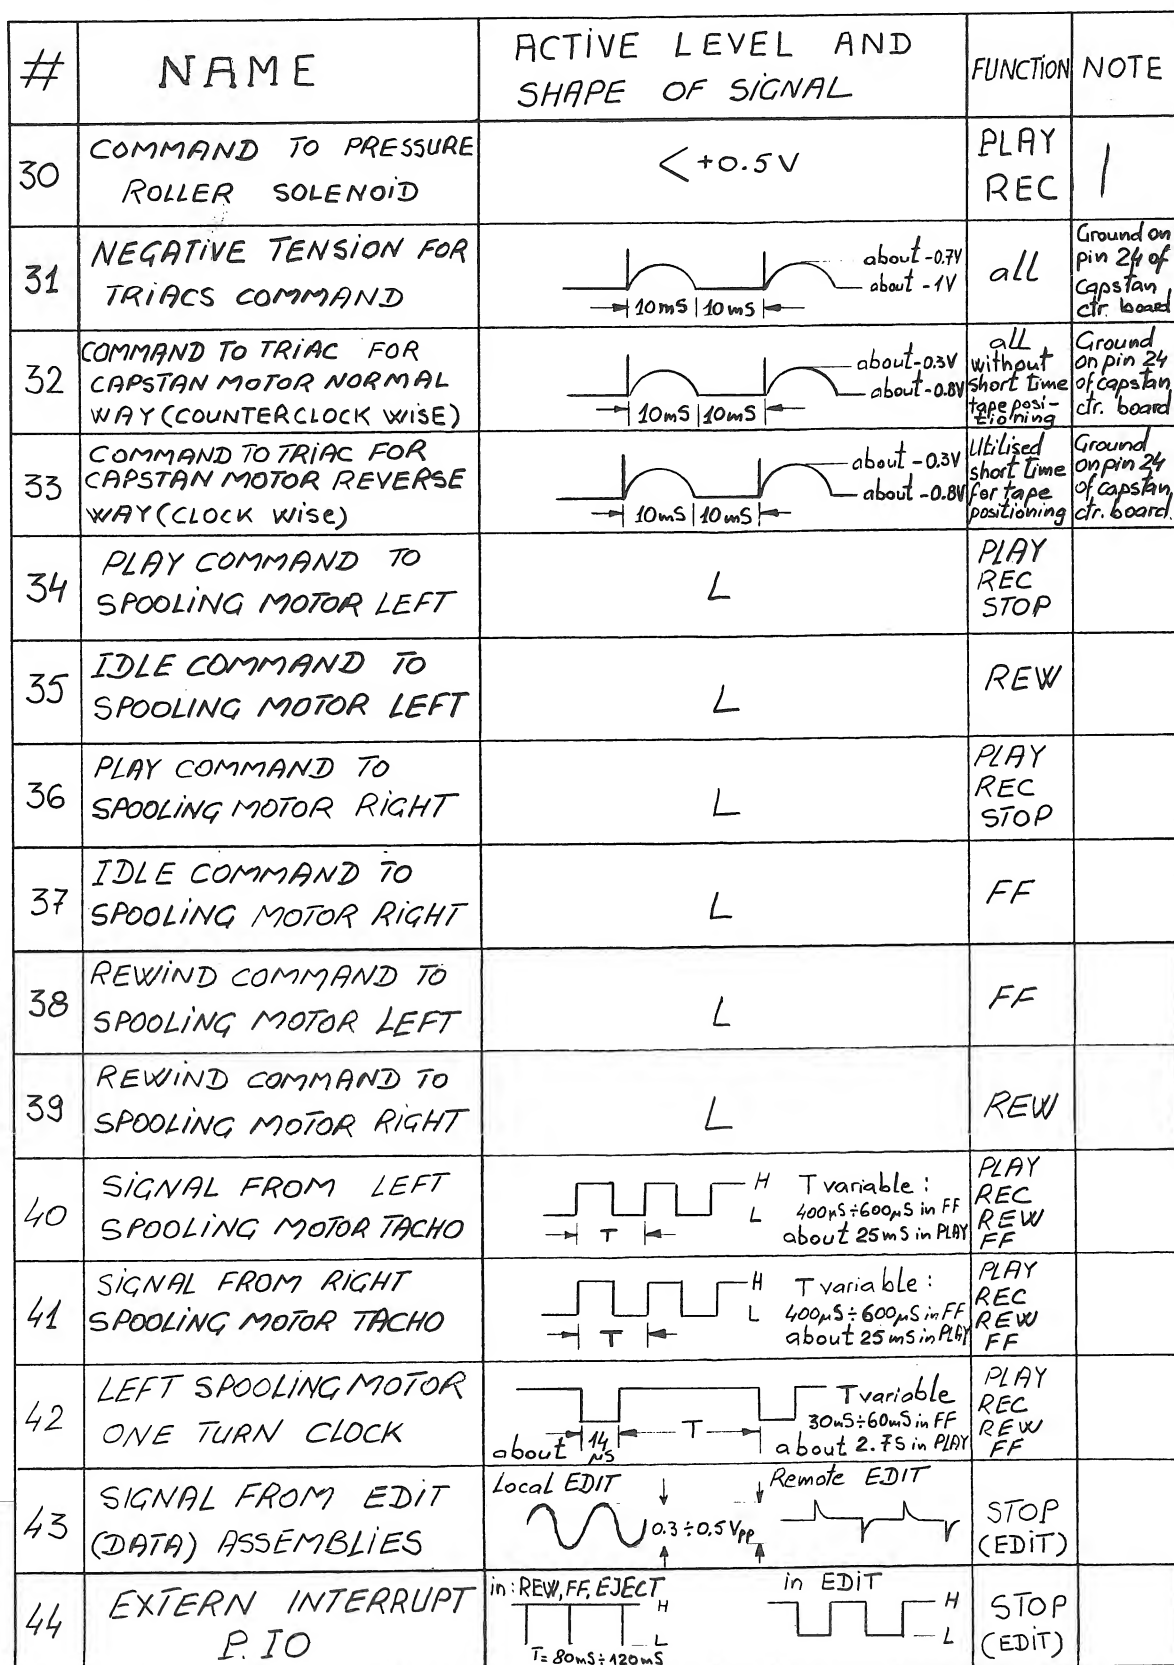 # NAME ACTIVE LEVEL AND SHAPE OF SIGNAL FUNCTION NOTE
30 COMMAND TO PRESSURE
ROLLER SOLENOID
< +0.5V
PLAY
REC
1
31 NEGATIVE TENSION FOR
TRIACS COMMAND
about -0.7V
about -1V
10mS 10mS
all
Ground on
pin 24 of
Capstan
ctr. board
32 COMMAND TO TRIAC FOR
CAPSTAN MOTOR NORMAL
WAY (COUNTERCLOCK WISE)
about -0.3V
about -0.8V
10mS 10mS
all
without
short time
tape posi-
tioning
Ground
on pin 24
of capstan
ctr. board
33 COMMAND TO TRIAC FOR
CAPSTAN MOTOR REVERSE
WAY (CLOCK WISE)
about -0.3V
about -0.8V
10mS 10mS
Utilised
short time
for tape
positioning
Ground
on pin 24
of capstan
ctr. board.
34 PLAY COMMAND TO
SPOOLING MOTOR LEFT
L
PLAY
REC
STOP
35 IDLE COMMAND TO
SPOOLING MOTOR LEFT
L
REW
36 PLAY COMMAND TO
SPOOLING MOTOR RIGHT
L
PLAY
REC
STOP
37 IDLE COMMAND TO
SPOOLING MOTOR RIGHT
L
FF
38 REWIND COMMAND TO
SPOOLING MOTOR LEFT
L
FF
39 REWIND COMMAND TO
SPOOLING MOTOR RIGHT
L
REW
40 SIGNAL FROM LEFT
SPOOLING MOTOR TACHO
H
L
T
T variable :
400µS÷600µS in FF
about 25mS in PLAY
PLAY
REC
REW
FF
41 SIGNAL FROM RIGHT
SPOOLING MOTOR TACHO
H
L
T
T variable :
400µS÷600µS in FF
about 25mS in PLAY
PLAY
REC
REW
FF
42 LEFT SPOOLING MOTOR
ONE TURN CLOCK
about 14 µS
T
T variable
30mS÷60mS in FF
about 2.7S in PLAY
PLAY
REC
REW
FF
43 SIGNAL FROM EDIT
(DATA) ASSEMBLIES
Local EDIT
0.3÷0.5Vpp
Remote EDIT
STOP
(EDIT)
44 EXTERN INTERRUPT
P.IO
in : REW, FF, EJECT
H
L
T= 80mS÷120mS
in EDIT
H
L
STOP
(EDIT)